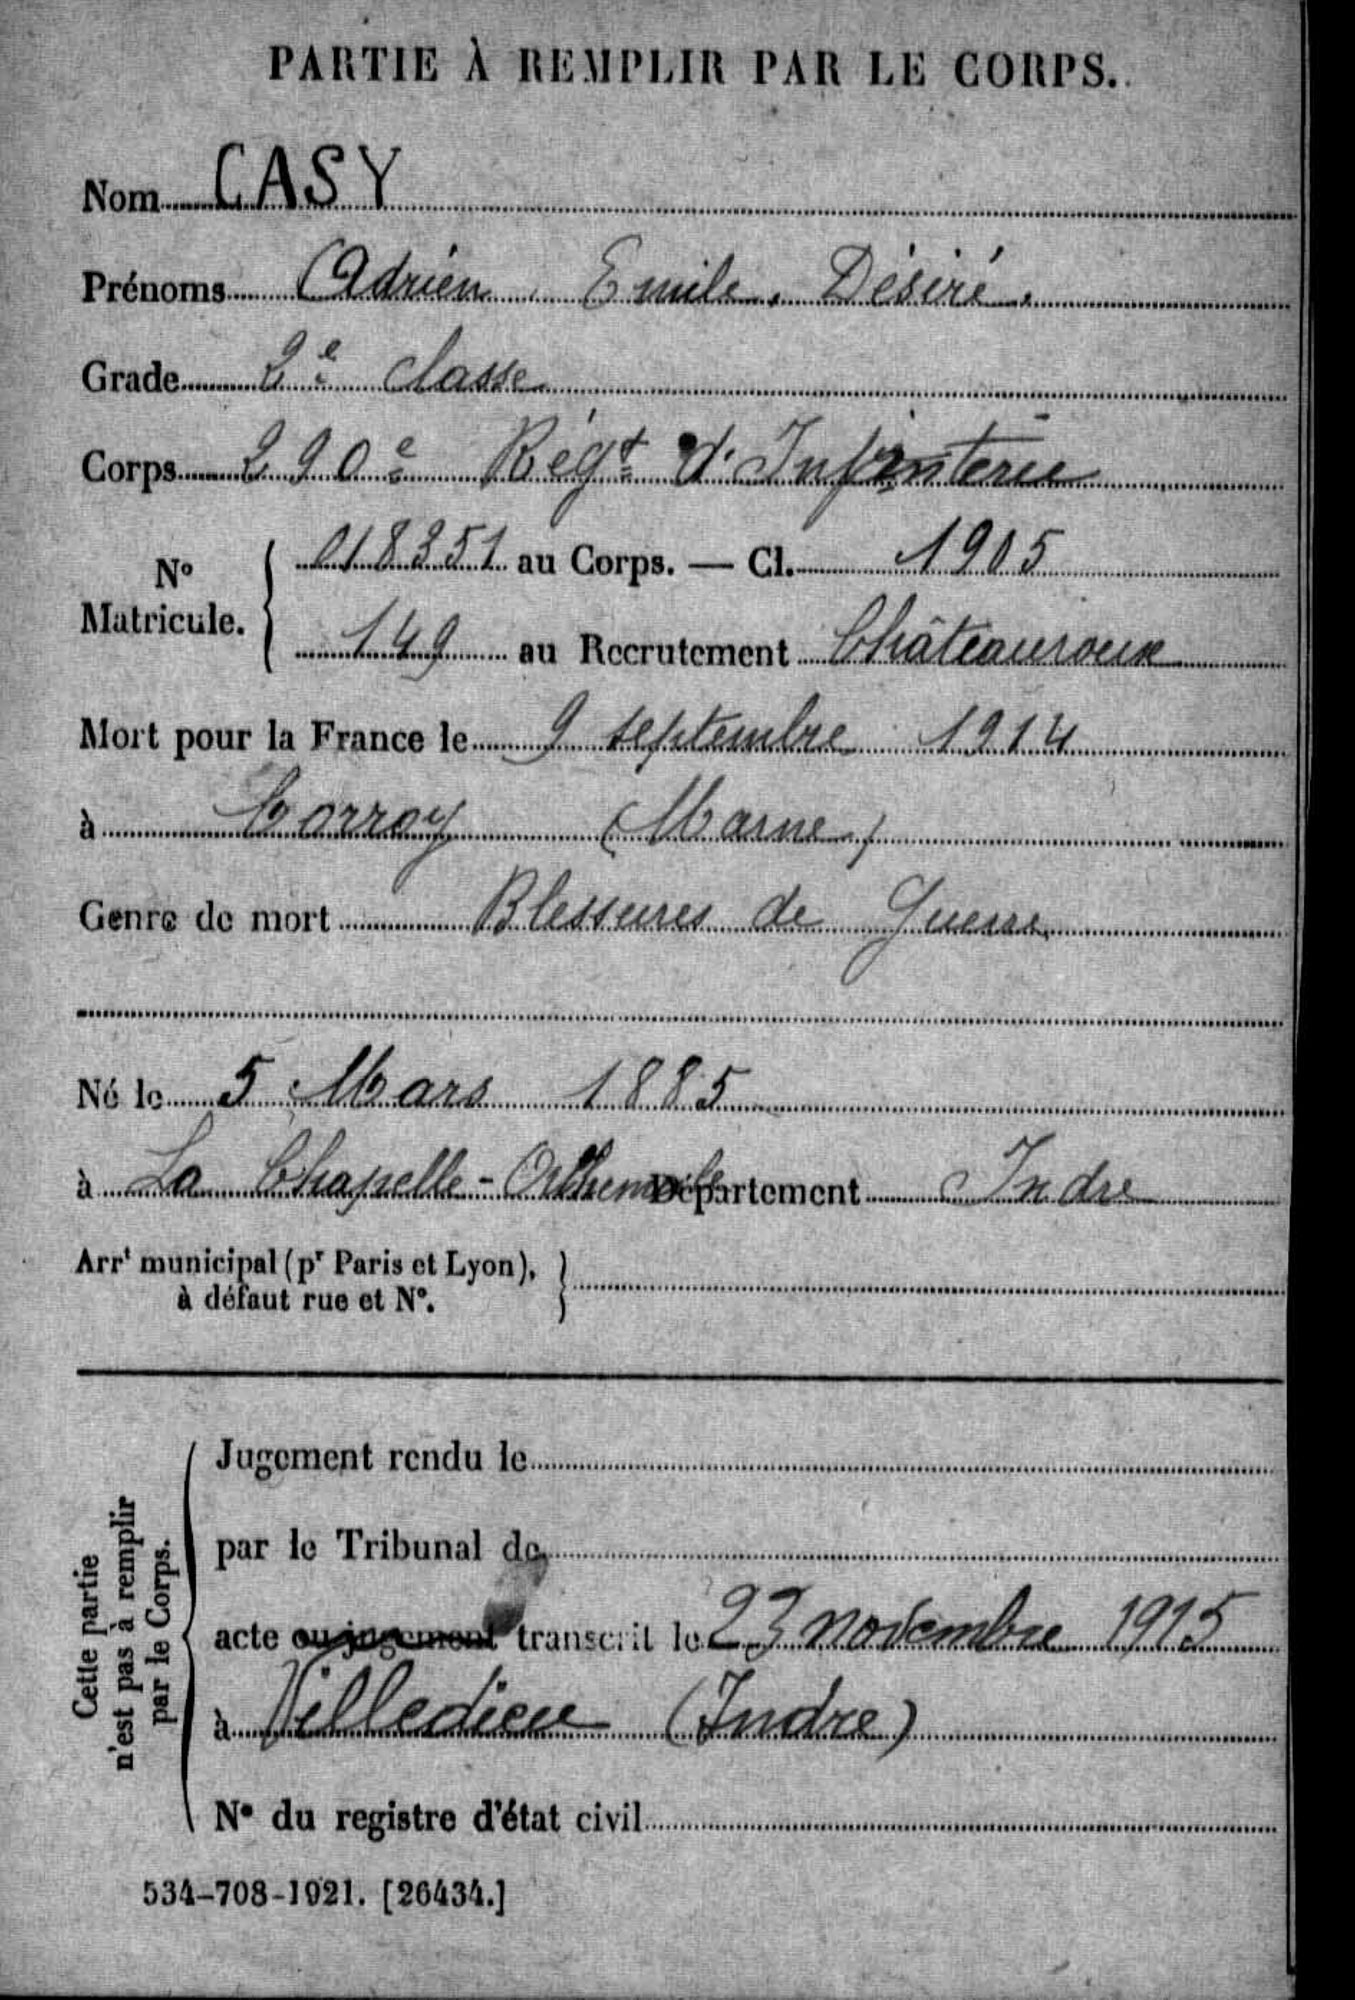 PARTIE À REMPLIR PAR LE CORPS.
Nom CASY
Prénoms Adrien, Emile, Désiré.
Grade 2e classe
Corps 290e Régt d'Infanterie
No Matricule. { 018351 au Corps. — Cl. 1905
149 au Recrutement Châteauroux
Mort pour la France le 9 septembre 1914
à Corroy (Marne)
Genre de mort Blessures de Guerre
Né le 5 Mars 1885
à La Chapelle-Orthemale Département Indre
Arrt municipal (pr Paris et Lyon), à défaut rue et No. }
Cette partie n'est pas à remplir par le Corps.
Jugement rendu le
par le Tribunal de
acte ou jugement transcrit le 23 novembre 1915
à Villedieu (Indre)
No du registre d'état civil
534-708-1921. [26434.]